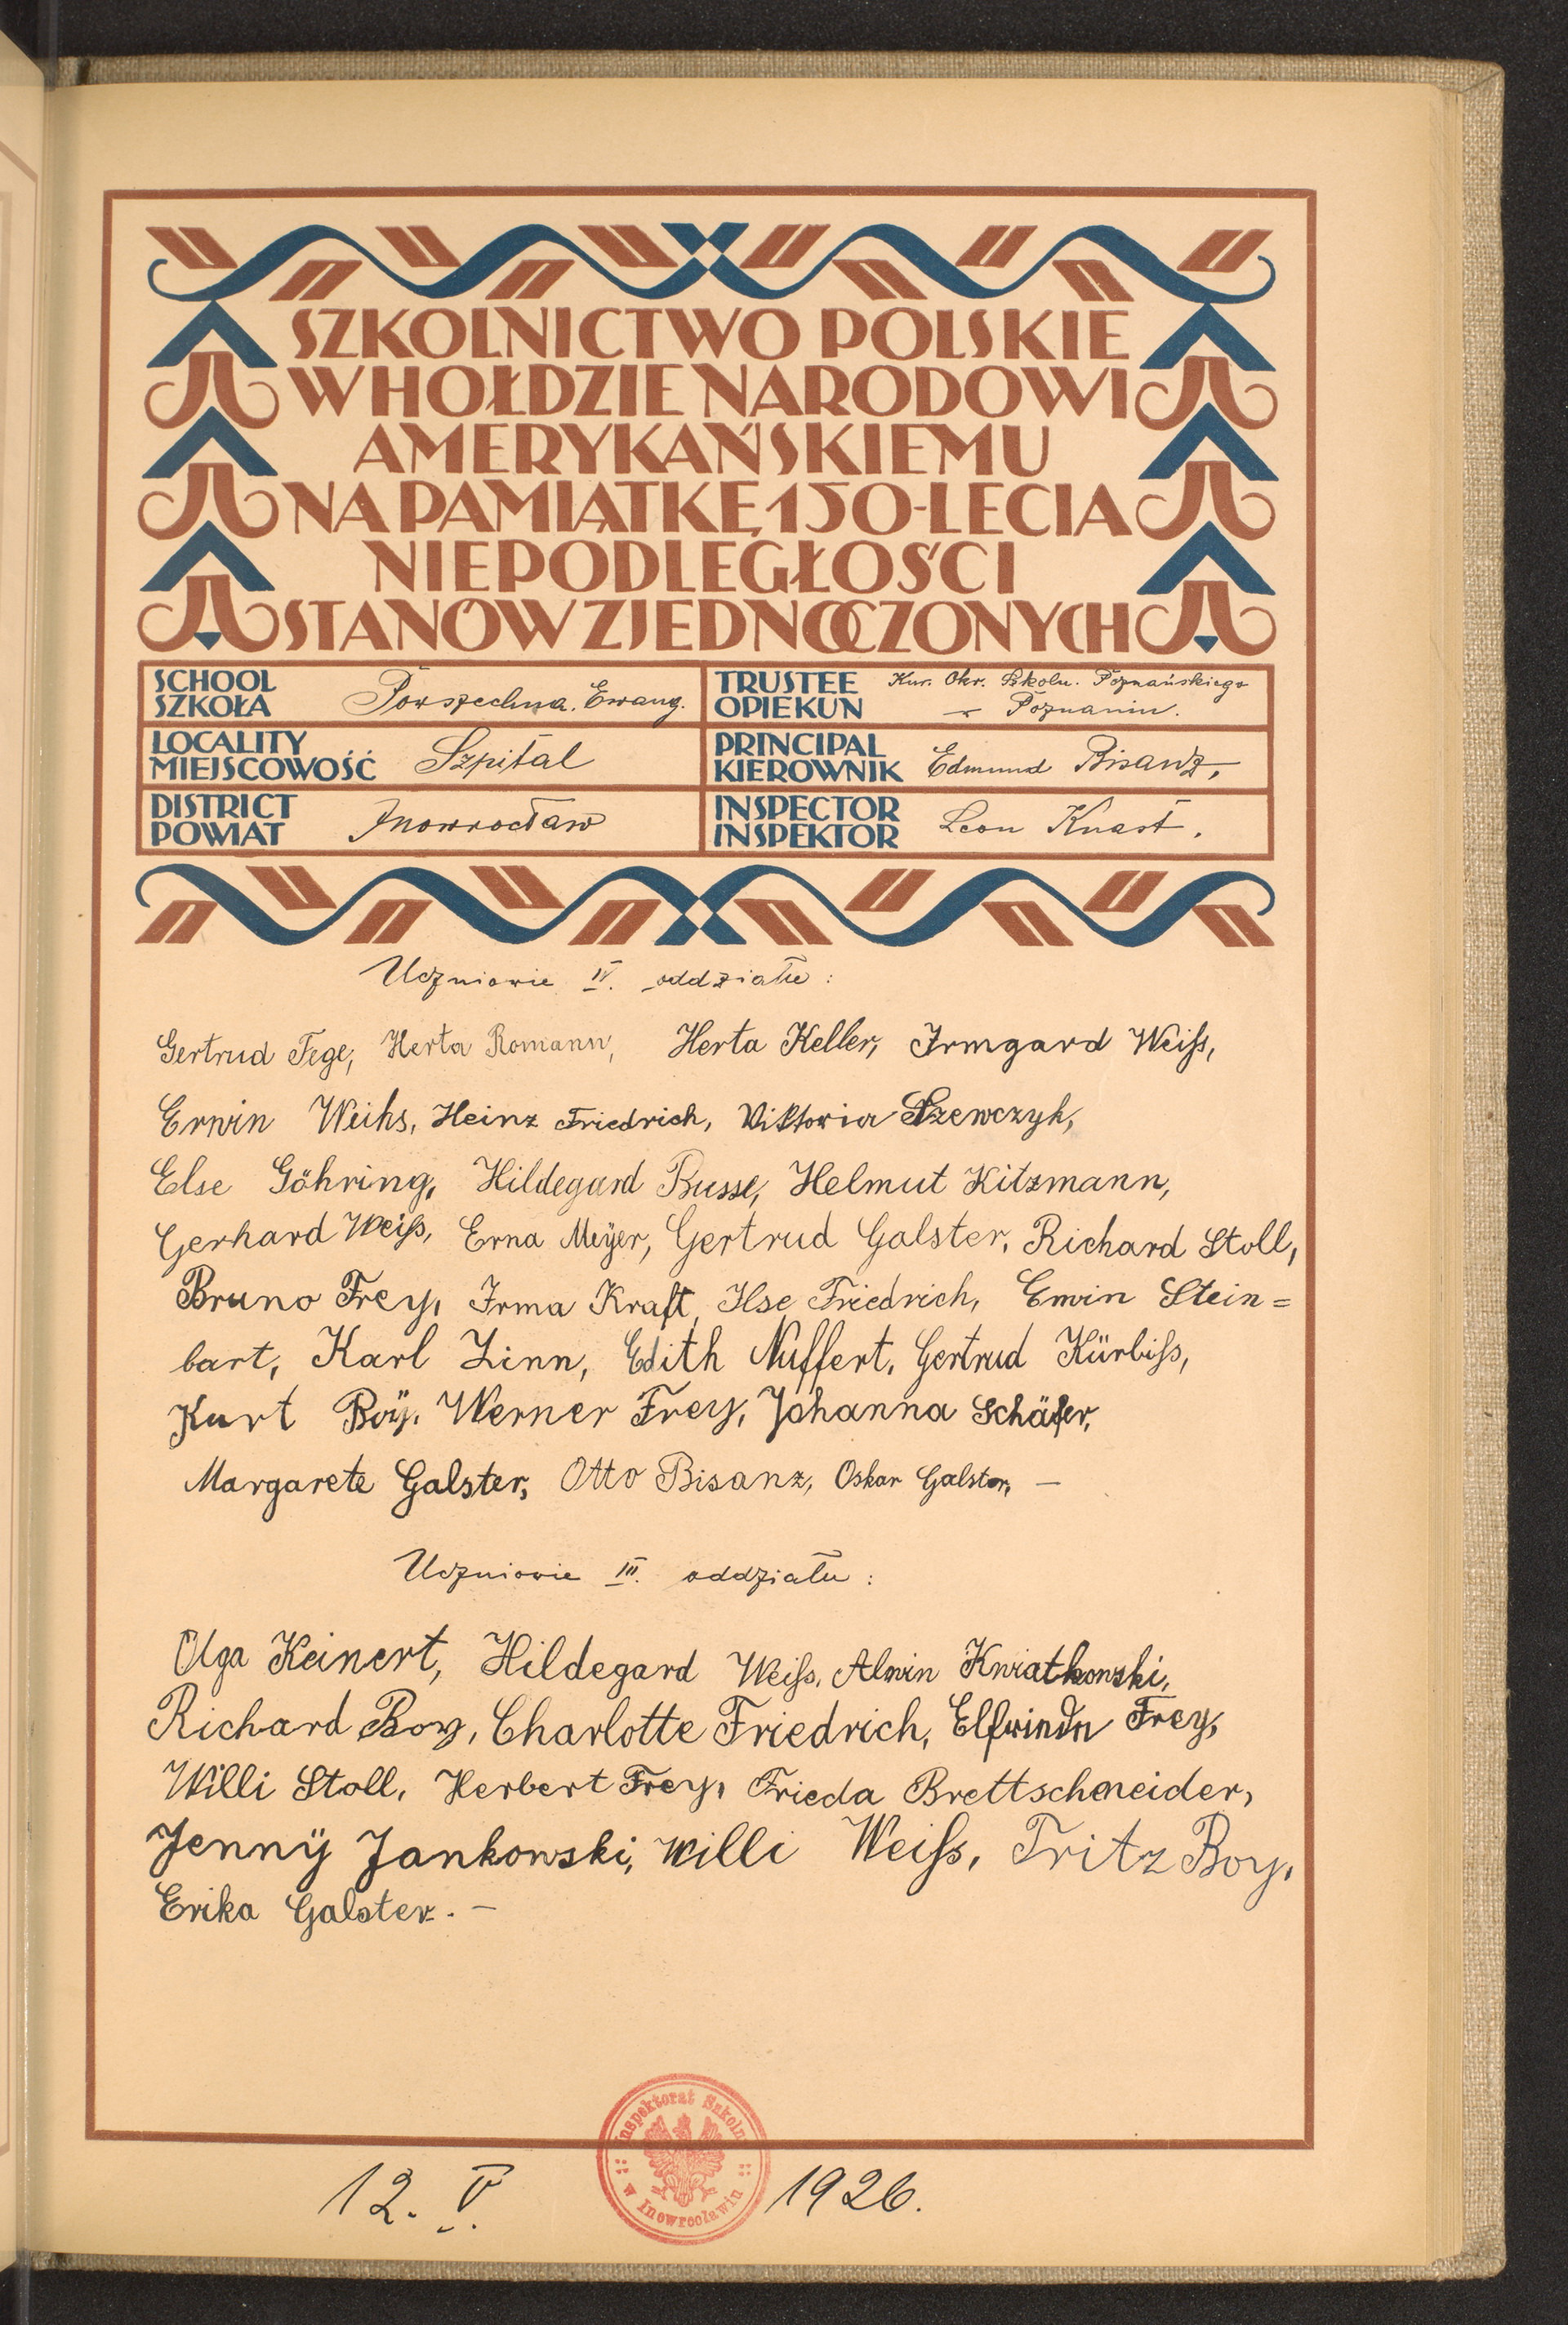 SZKOLNICTWO POLSKIE
W HOŁDZIE NARODOWI
AMERYKAŃSKIEMU
NA PAMIĄTKĘ 150-LECIA
NIEPODLEGŁOŚCI
STANÓW ZJEDNOCZONYCH
SCHOOL
SZKOŁA
Powszechna. Ewang.
TRUSTEE
OPIEKUN
Kur. Okr. Szkoln. Poznańskiego
w Poznaniu.
LOCALITY
MIEJSCOWOŚĆ
Szpital
PRINCIPAL
KIEROWNIK
Edmund Bisanz,
DISTRICT
POWIAT
Inowrocław
INSPECTOR
INSPEKTOR
Leon Knast.
Uczniowie IV. oddziału:
Gertrud Fege, Herta Romann, Herta Keller, Irmgard Weiß,
Erwin Weihs, Heinz Friedrich, Viktoria Szewczyk,
Else Göhring, Hildegard Busse, Helmut Kitzmann,
Gerhard Weiß, Erna Meÿer, Gertrud Galster, Richard Stoll,
Bruno Frey, Irma Kraft, Ilse Friedrich, Erwin Stein=
bart, Karl Zinn, Edith Nuffert, Gertrud Kürbiß,
Kurt Boÿ. Werner Frey, Johanna Schäfer,
Margarete Galster, Otto Bisanz, Oskar Galster, —
Uczniowie III. oddziału:
Olga Keinert, Hildegard Weiß, Alwin Kwiatkowski,
Richard Boy, Charlotte Friedrich, Elfriede Frey,
Willi Stoll, Herbert Frey, Frieda Brettschneider,
Jennÿ Jankowski, Willi Weiß, Fritz Boy,
Erika Galster. —
Inspektorat Szkolny
w Inowrocławiu
12. V. 1926.